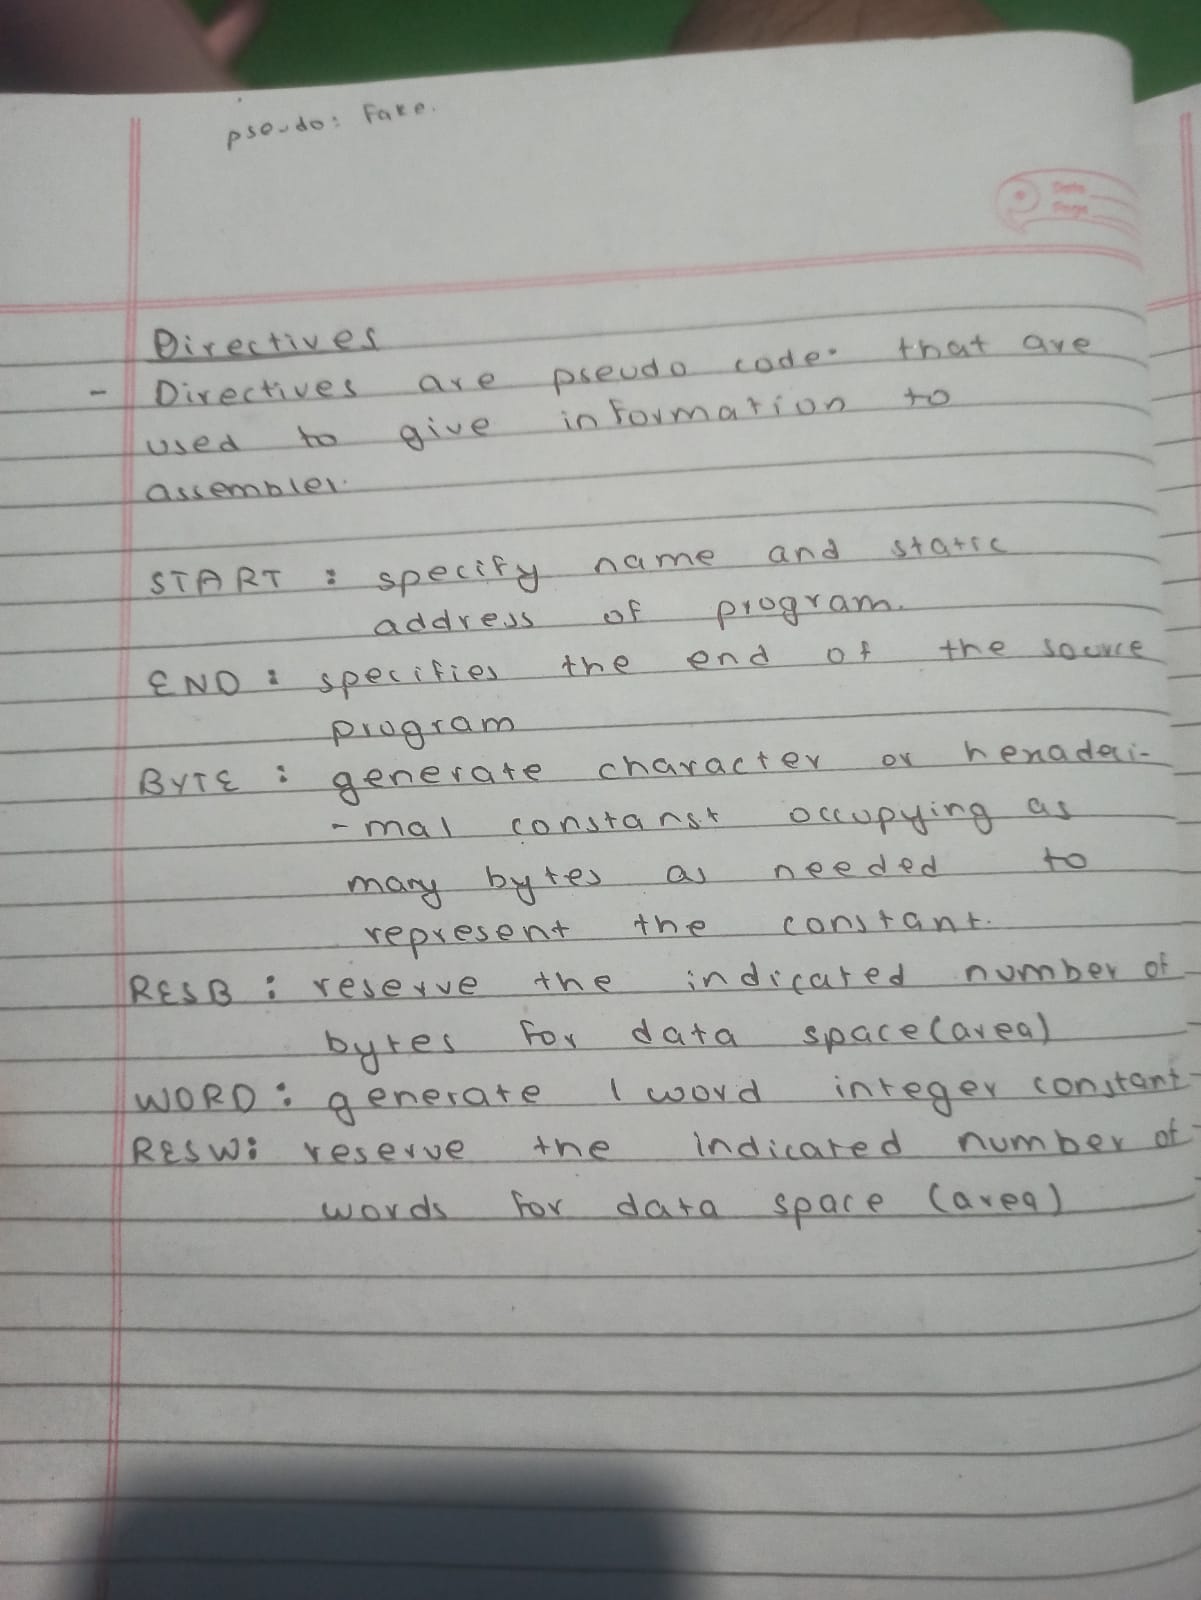 pseudo: Fake.
Date
Page
Directives
- Directives are pseudo code. that are
used to give information to
assembler.
START : specify name and static
address of program.
END : specifies the end of the source
program
BYTE : generate character or hexadeci-
- mal constanst occupying as
many bytes as needed to
represent the constant.
RESB : reserve the indicated number of
bytes for data space (area)
WORD : generate 1 word integer constant
RESW: reserve the indicated number of
words for data space (area)